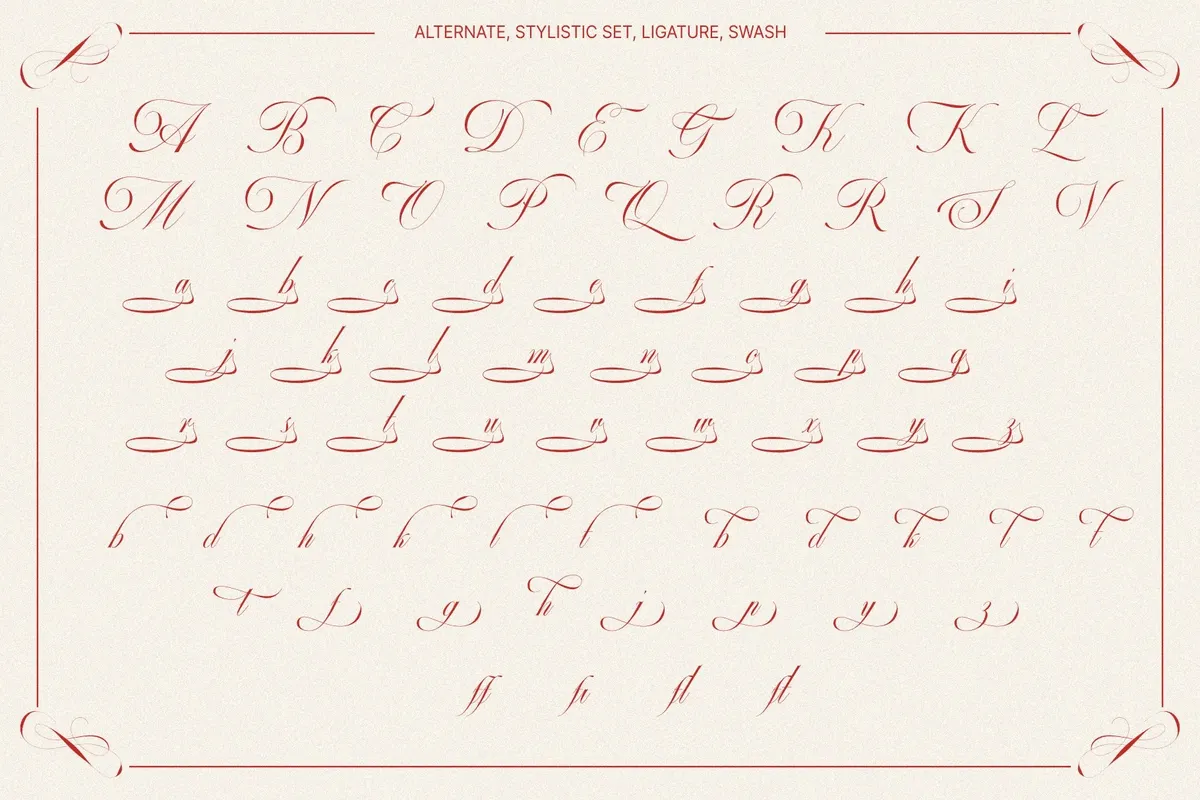 ALTERNATE, STYLISTIC SET, LIGATURE, SWASH
A B C D E G K K L
M N O P Q R R S V
a b c d e f g h i
j k l m n o p q
r s t u v w x y z
b d h k l t b d k l t
t f g h j p y z
ff fi fl ft